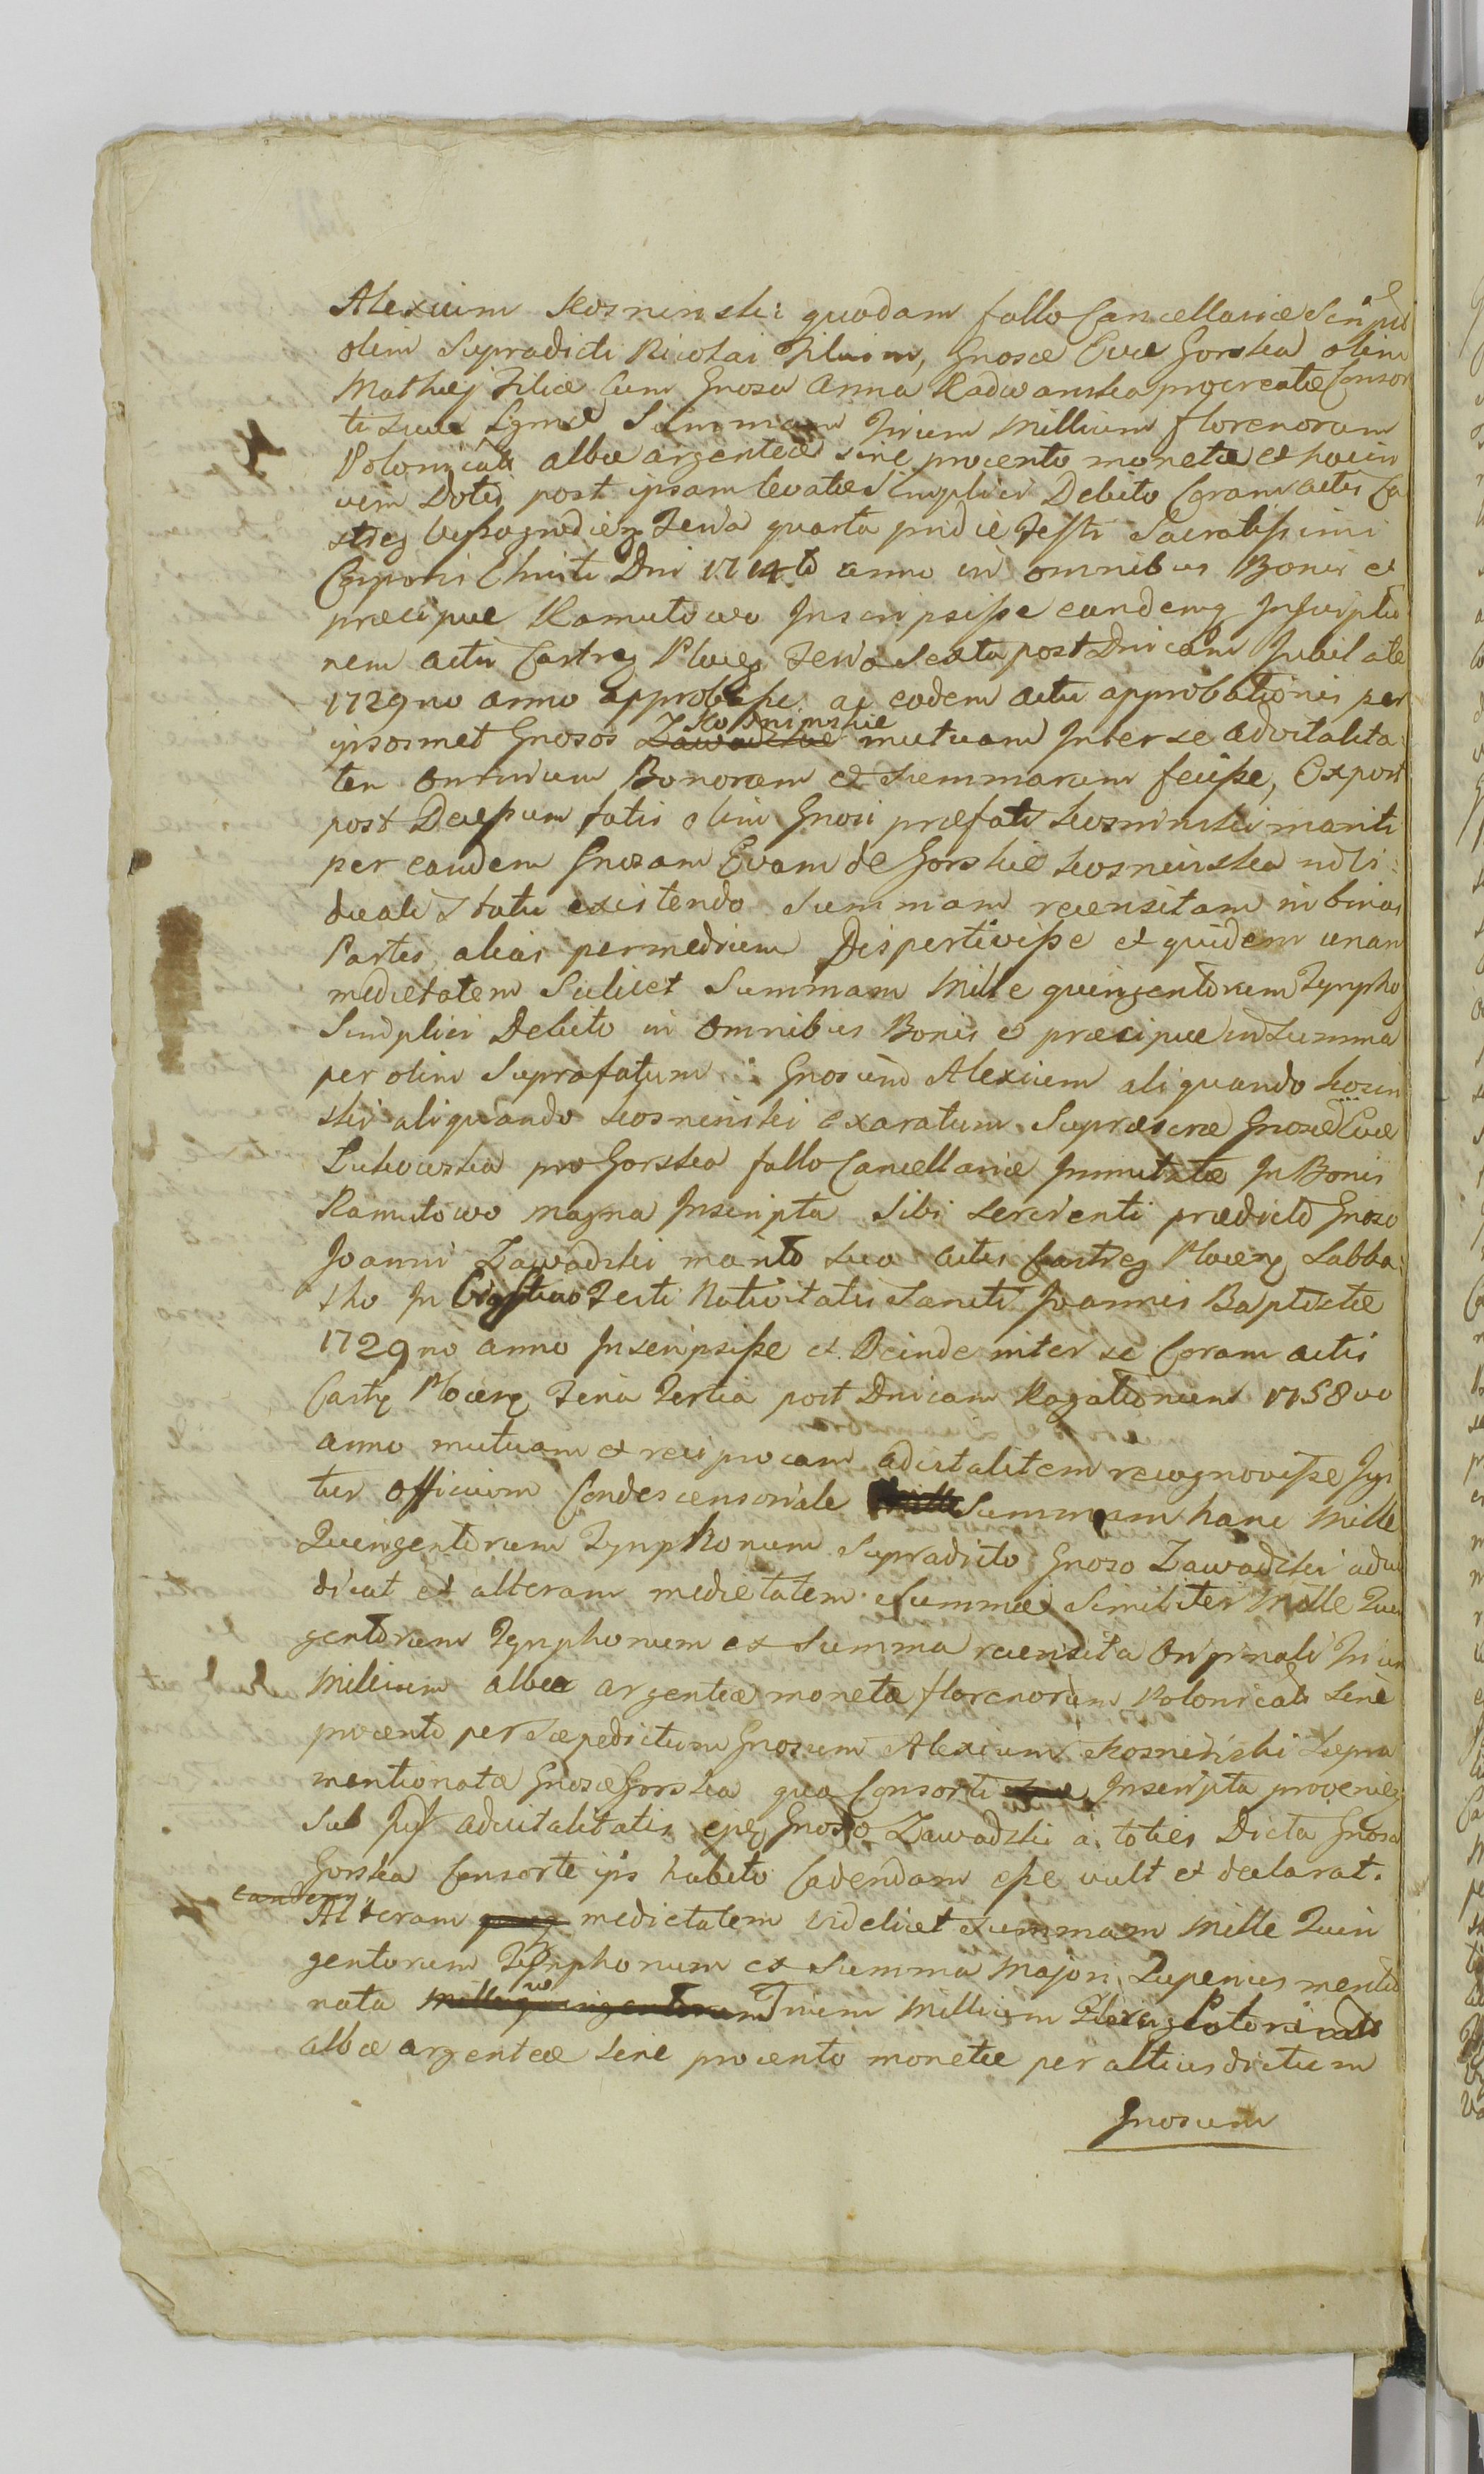 Alexium Kosninski quodam fallo Cancellariæ Scrip
olim Supradicti Nicolai Filium, Gnosæ Evæ Gorska olim
Mathiej Filiæ Cum Gnosa Anna Radwanska procreatæ Consor
ti suæ Lgmæ Summam Trium Millium florenorum
Polonicali albæ argenteæ sine procento monetæ et hoc in
vim Dotis post ipsam levatæ Simplici Debito Coram actis Ca
streg Wyssogrodieg Feria quarta pridie Festi Sacratissimi
Corporis Christi Dni 1714to anno in omnibus Bonis et
præcipue Ramutowo Inscripsisse eandemq Inscriptio
nem actis Castreg Ploceg Feria Sexta post Dnicam Jubilate
1729no anno approbasse ac eodem actu approbationis per
Kosninskie
ipsosmet Gnosos Zawadzkie mutuam Inter se advitalita
tem omnium Bonorum et summarum fecisse, Expost
post Decessum fatis olim Gnosi præfati Kosninski mariti
per eandem Gnosam Evam de Gorskie Kosninska in vi
duali Statu existendo Summam recensitam in binas
Partes alias permedium Dispertivisse et quidem unam
medietatem Scilicet Summam Mille quingentorum Tynpho
Simplici Debito in omnibus Bonis et præcipue in Summa
per olim Suprafatum Gnosum Alexium aliquando Kosin
ski aliquando Kosninski exaratum Supra Gnosæ Evæ
Lukowska pro Gorska fallo Cancellariæ Immutatæ In Bonis
Ramutowo magna Inscripta Sibi Servienti prædicto Gnoso
Joanni Zawadzki marito suo actis Castreg Ploceg Sabba
tho In Crastino Festi Nativitatis Sancti Joannis Baptistæ
1729no anno Inscripsisse et Deinde inter se Coram actis
Castr Plocens Feria Tertia post Dnicam Rogationum 1758vo
anno mutuam et reciprocam advitalitem recognovisse Igi
tur officium Condescensoriale Summam hanc Mille
Quingentorum Tynphonum Supradicto Gnoso Zawadzki adiu
dicat et alteram medietatem Summæ Similiter Mille Quin
gentorum Tynphonum ex Summa recensita originali Trium
Millium albæ argenteæ monetæ florenorum Polonicali sine
procento per sæpedictum Gnosum Alexium Kosninski Supra
mentionata Gnosæ Gorska qua Consorti suæ Inscripta provenien
Sub Jus advitalitatis ejusq Gnoso Zawadzki a toties Dicta Gnosa
Gorska Consorte ipsi habito Cadendam esse vult et declarat.
eandemq
Alteram medietatem videlicet summam Mille Quin
gentorum Tynphonum ex Summa Majori Superius mentio
nata Mille quingentorum Trium Millium Floreng Polonicali
albæ argenteæ sine procento monetæ per altius dictum
Gnosum